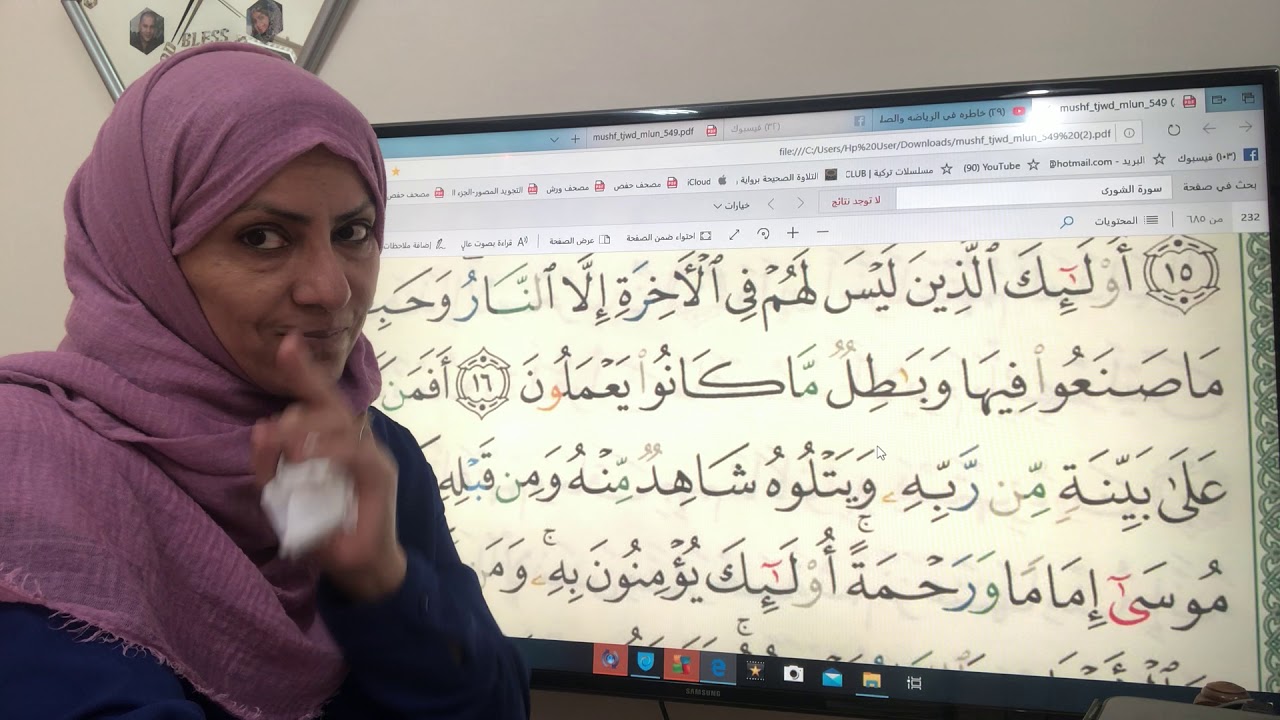 BLESS
mushf_tjwd_mlun_549 (
خاطره في الرياضه والصلـ (٢٩)
(٣٢) فيسبوك
mushf_tjwd_mlun_549.pdf
file:///C:/Users/Hp%20User/Downloads/mushf_tjwd_mlun_549%20(2).pdf
(١٠٣) فيسبوك
البريد - hotmail.com
(90) YouTube
مسلسلات تركية | CLUB
التلاوة الصحيحة برواية
iCloud
مصحف حفص
مصحف ورش
التجويد المصور-الجزء ال
مصحف حفص
بحث في صفحة
سورة الشورى
لا توجد نتائج
خيارات
232 من ٦٨٥
المحتويات
احتواء ضمن الصفحة
عرض الصفحة
قراءة بصوت عالٍ
إضافة ملاحظات
١٥ أُوْلَـٰٓئِكَ ٱلَّذِينَ لَيْسَ لَهُمْ فِى ٱلْأَخِرَةِ إِلَّا ٱلنَّارُ وَحَبِ
مَا صَنَعُوا۟ فِيهَا وَبَـٰطِلٌ مَّا كَانُوا۟ يَعْمَلُونَ ١٦ أَفَمَن
عَلَىٰ بَيِّنَةٍ مِّن رَّبِّهِۦ وَيَتْلُوهُ شَاهِدٌ مِّنْهُ وَمِن قَبْلِهِ
مُوسَىٰٓ إِمَامًا وَرَحْمَةً ۚ أُوْلَـٰٓئِكَ يُؤْمِنُونَ بِهِۦ ۚ وَمَن
SAMSUNG